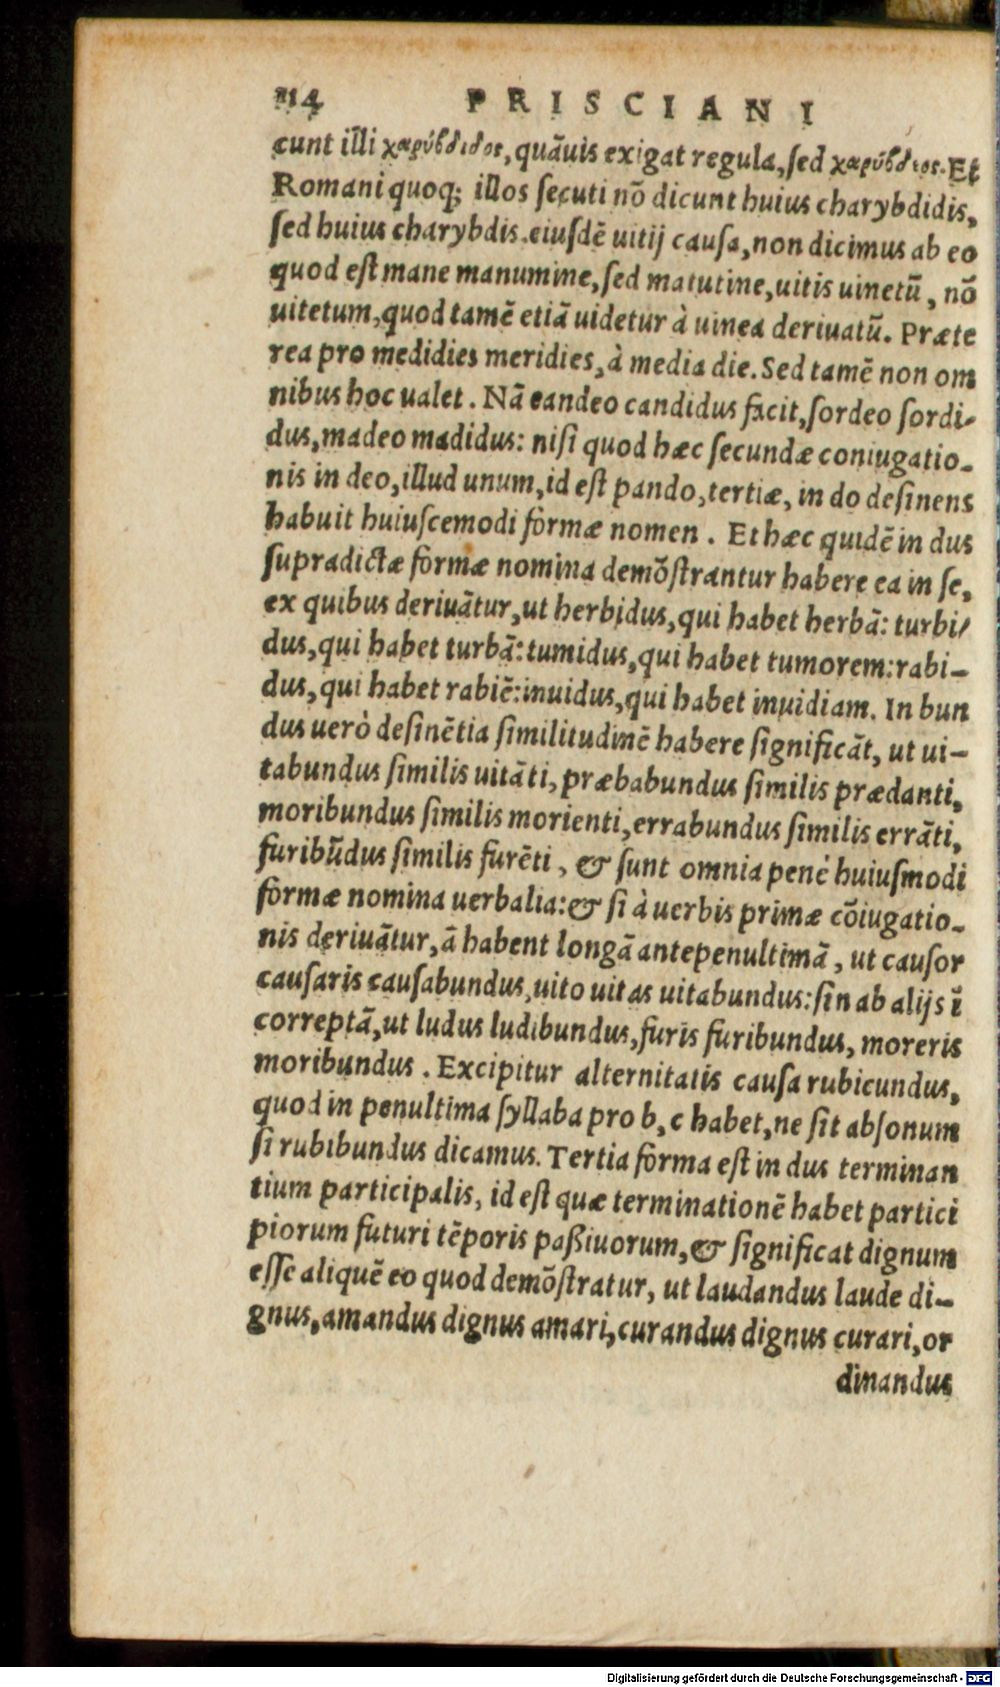 114 PRISCIANI
cunt illi χαρύβδιδος, quãuis exigat regula, ſed χαρύβδιος. Et
Romani quoq; illos ſecuti nõ dicunt huius charybdidis,
ſed huius charybdis. eiuſdẽ uitij cauſa, non dicimus ab eo
quod eſt mane manumine, ſed matutine, uitis uinetũ, nõ
uitetum, quod tamẽ etiã uidetur à uinea deriuatũ. Præte
rea pro medidies meridies, à media die. Sed tamẽ non om
nibus hoc ualet. Nã eandeo candidus facit, ſordeo ſordi-
dus, madeo madidus: niſi quod hæc ſecundæ coniugatio-
nis in deo, illud unum, id eſt pando, tertiæ, in do deſinens
habuit huiuſcemodi formæ nomen. Et hæc quidẽ in dus
ſupradictæ formæ nomina demõſtrantur habere ea in ſe,
ex quibus deriuãtur, ut herbidus, qui habet herbã: turbi-
dus, qui habet turbã: tumidus, qui habet tumorem: rabi-
dus, qui habet rabiẽ: inuidus, qui habet inuidiam. In bun
dus uerò deſinẽtia ſimilitudinẽ habere ſignificãt, ut ui-
tabundus ſimilis uitãti, præbabundus ſimilis prædanti,
moribundus ſimilis morienti, errabundus ſimilis errãti,
furibũdus ſimilis furẽti, & ſunt omnia penè huiuſmodi
formæ nomina uerbalia: & ſi à uerbis primæ cõiugatio-
nis deriuãtur, ã habent longã antepenultimã, ut cauſor
cauſaris cauſabundus, uito uitas uitabundus: ſin ab alijs ĩ
correptã, ut ludus ludibundus, furis furibundus, moreris
moribundus. Excipitur alternitatis cauſa rubicundus,
quod in penultima ſyllaba pro b, c habet, ne ſit abſonum
ſi rubibundus dicamus. Tertia forma eſt in dus terminan
tium participalis, id eſt quæ terminationẽ habet partici
piorum futuri tẽporis paßiuorum, & ſignificat dignum
eſſe aliquẽ eo quod demõſtratur, ut laudandus laude di-
gnus, amandus dignus amari, curandus dignus curari, or
dinandus
Digitalisierung gefördert durch die Deutsche Forschungsgemeinschaft - DFG